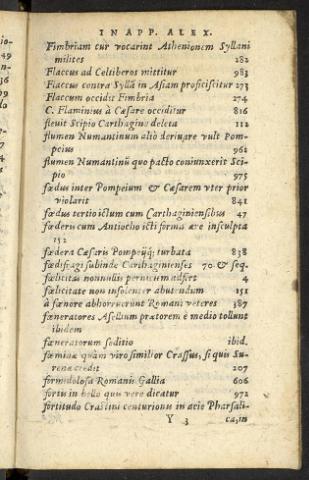 IN APP. ALEX.
Fimbriam cur vocarint Athenionem Syllani
milites 282
Flaccus ad Celtiberos mittitur 983
Flaccus contra Syllã in Asiam proficiscitur 273
Flaccum occidit Fimbria 274
C. Flaminius à Cæsare occiditur 816
fleuit Scipio Carthagine deleta 112
flumen Numantinum aliò deriuare vult Pom-
peius 961
flumen Numantinũ quo pacto coniunxerit Sci-
pio 975
fœdus inter Pompeium & Cæsarem vter prior
violarit 841
fœdus tertio ictum cum Carthaginensibus 47
fœderu cum Antiocho icti forma ære insculpta
152
fœdera Cæsaris Pompeijq; turbata 838
fœdifragi subinde Carthaginenses 70 & seq.
fœlicitas nonnullis perniciem adfert 4
fœlicitate non insolenter abutendum 151
à fœnore abhorruerunt Romani veteres 387
fœneratores Asellium prætorem è medio tollunt
ibidem
fœneratorum seditio ibid.
fœminæ quàm viro similior Crassus, si quis Su-
renæ credit 207
formidolosa Romanis Gallia 606
fortis in bello quis vere dicatur 972
fortitudo Crastini centurionis in acie Pharsali-
Y 3 ca, in